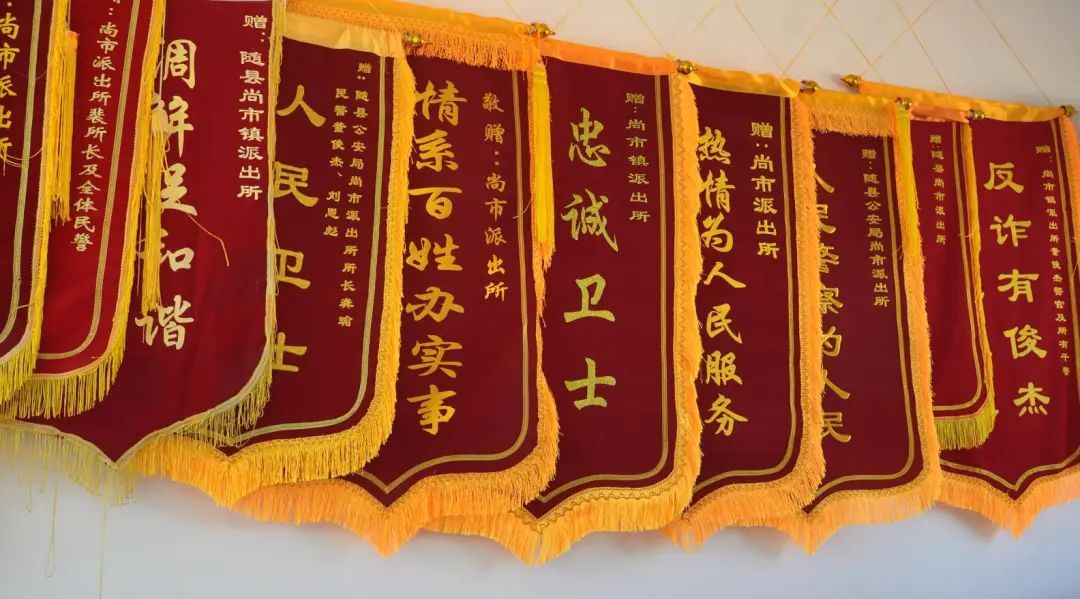 尚市派出所
赠:尚市派出所裴所长及全体民警
赠:随县尚市镇派出所
调解促和谐
赠:随县公安局尚市派出所所长龚瑜
民警董俊杰、刘恩彪
人民卫士
敬赠:尚市派出所
情系百姓办实事
赠:尚市镇派出所
忠诚卫士
赠:尚市派出所
热情为人民服务
赠:随县公安局尚市派出所
人民警察为人民
赠:随县尚市派出所
赠:尚市镇派出所董俊杰警官及所有干警
反诈有俊杰